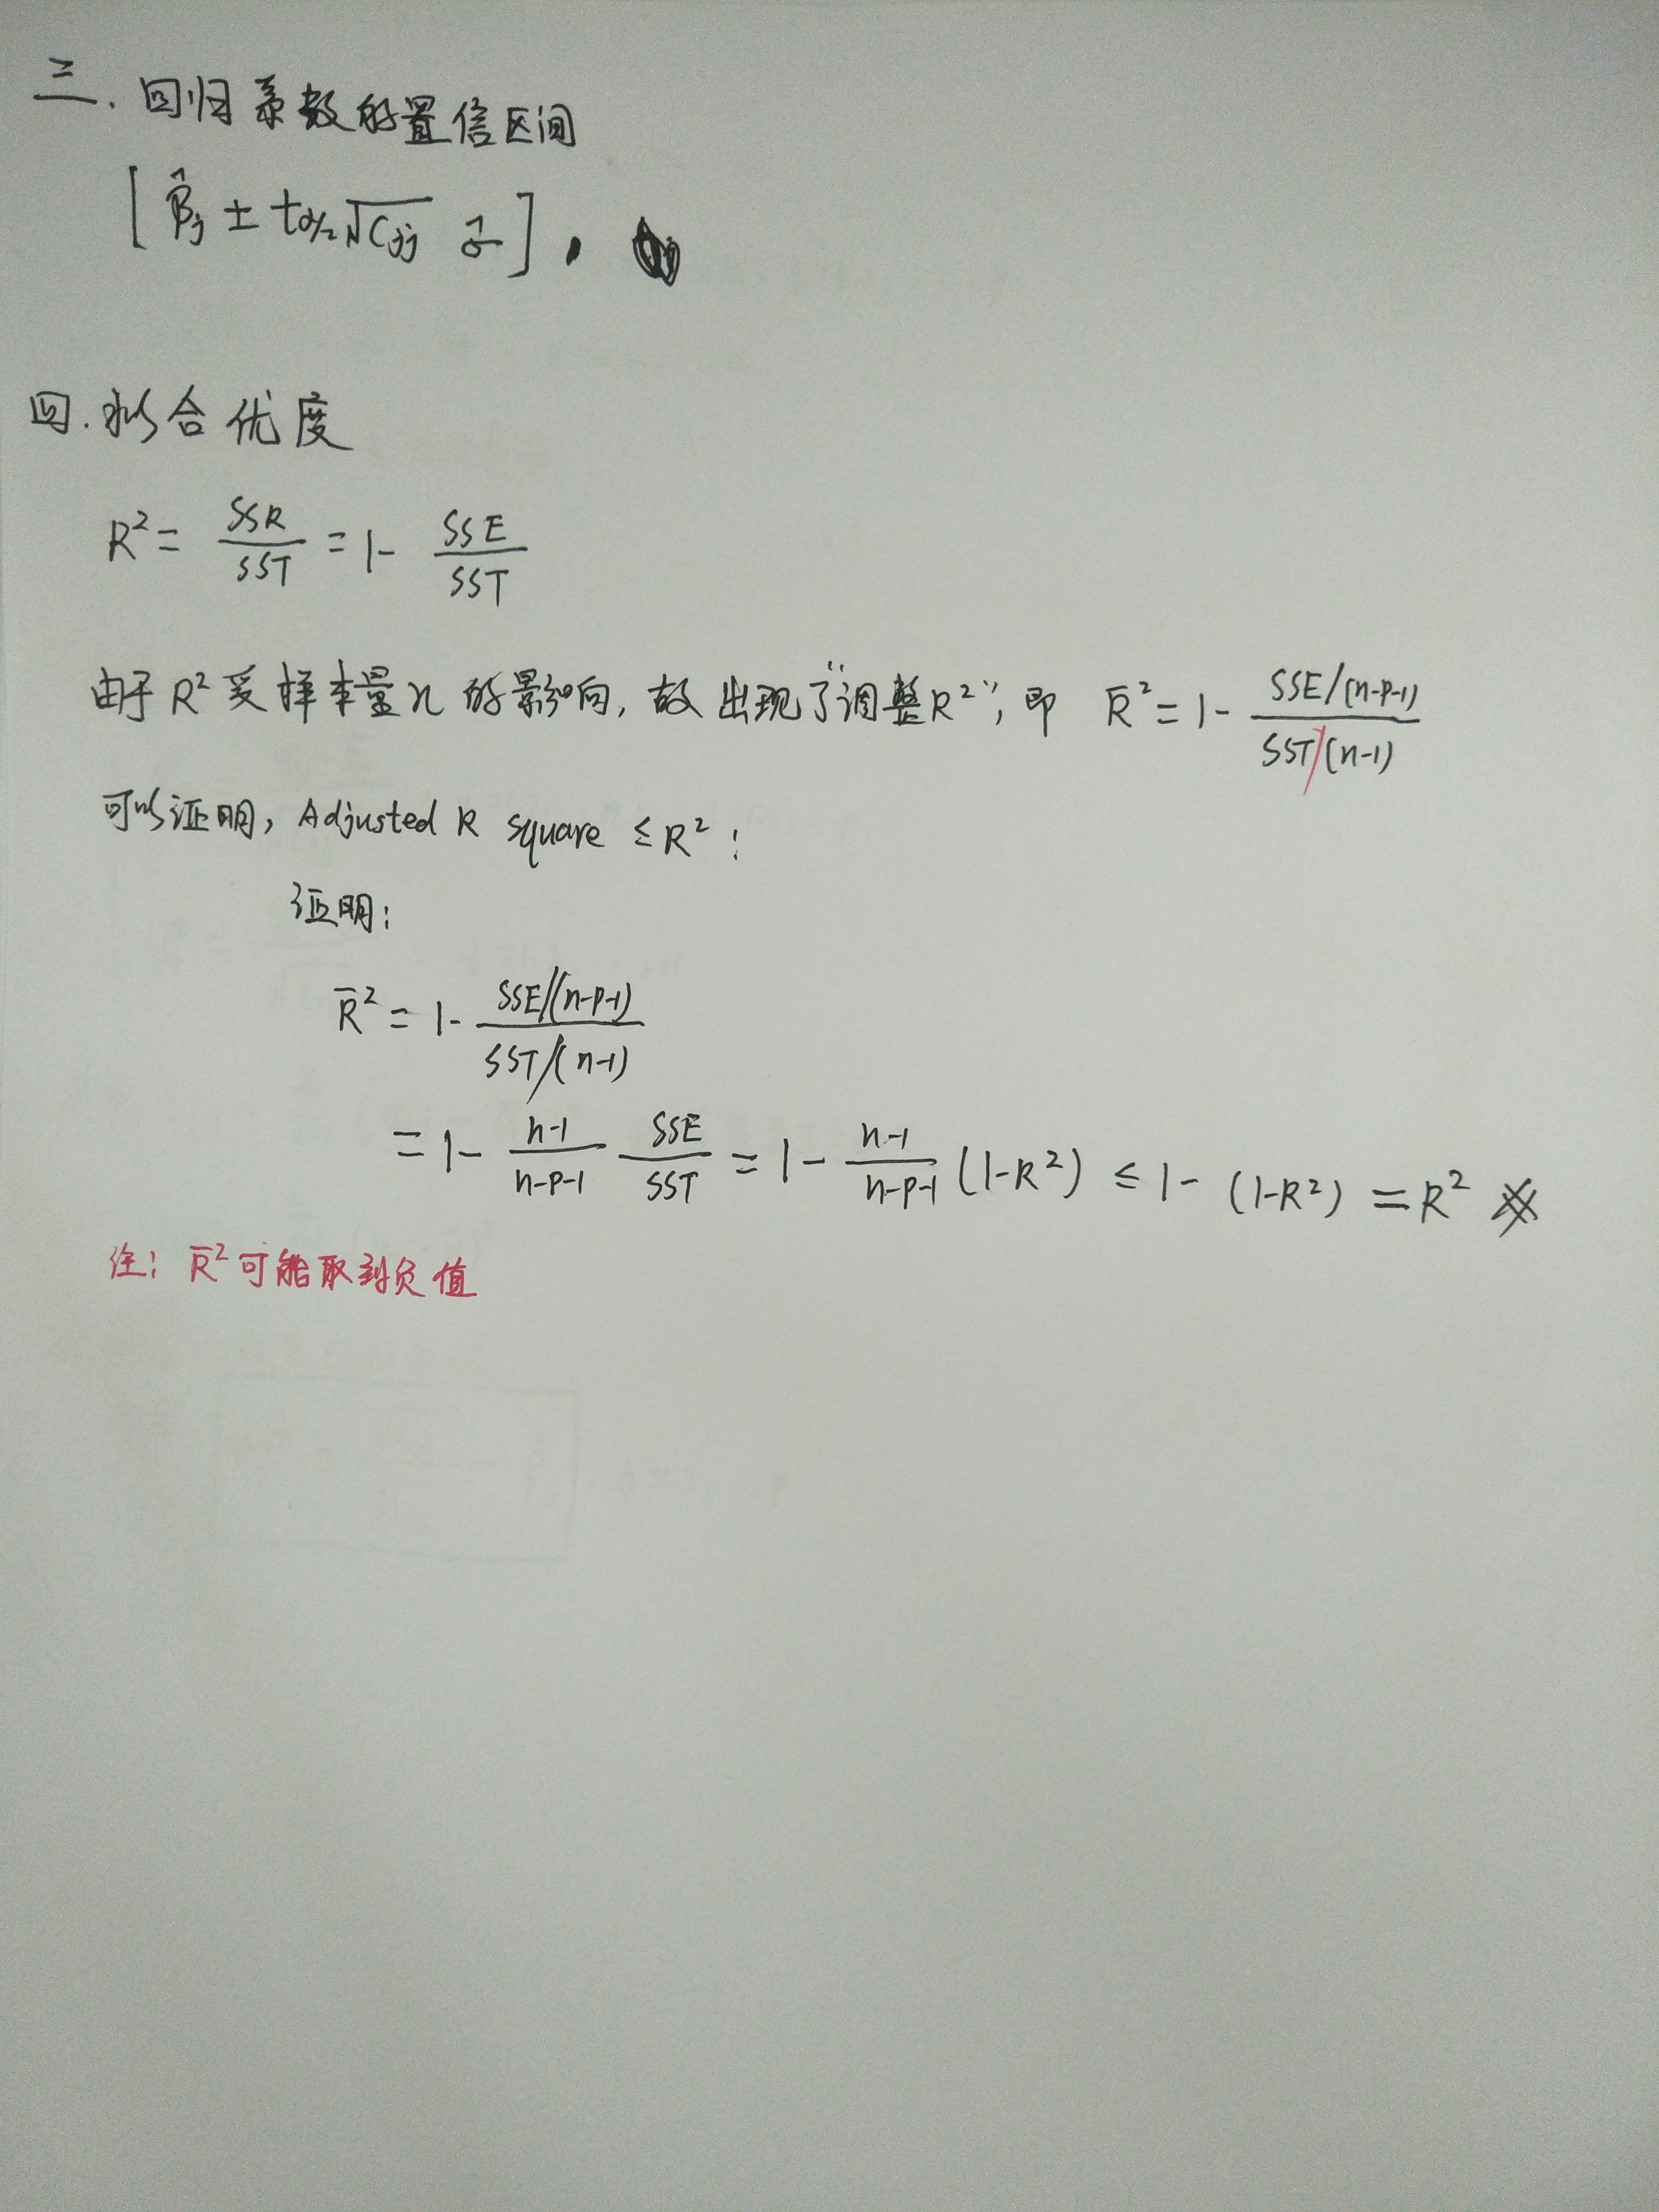 三. 回归系数的置信区间
[ β̂j ± tα/2 √Cjj σ̂ ],
四. 拟合优度
R² = SSR/SST = 1- SSE/SST
由于R²受样本量n的影响, 故出现了“调整R²”, 即 R̄² = 1- (SSE/(n-p-1))/(SST/(n-1))
可以证明, Adjusted R square ≤ R²:
证明:
R̄² = 1- (SSE/(n-p-1))/(SST/(n-1))
= 1- (n-1)/(n-p-1) SSE/SST = 1- (n-1)/(n-p-1) (1-R²) ≤ 1- (1-R²) = R² #
注: R̄²可能取到负值